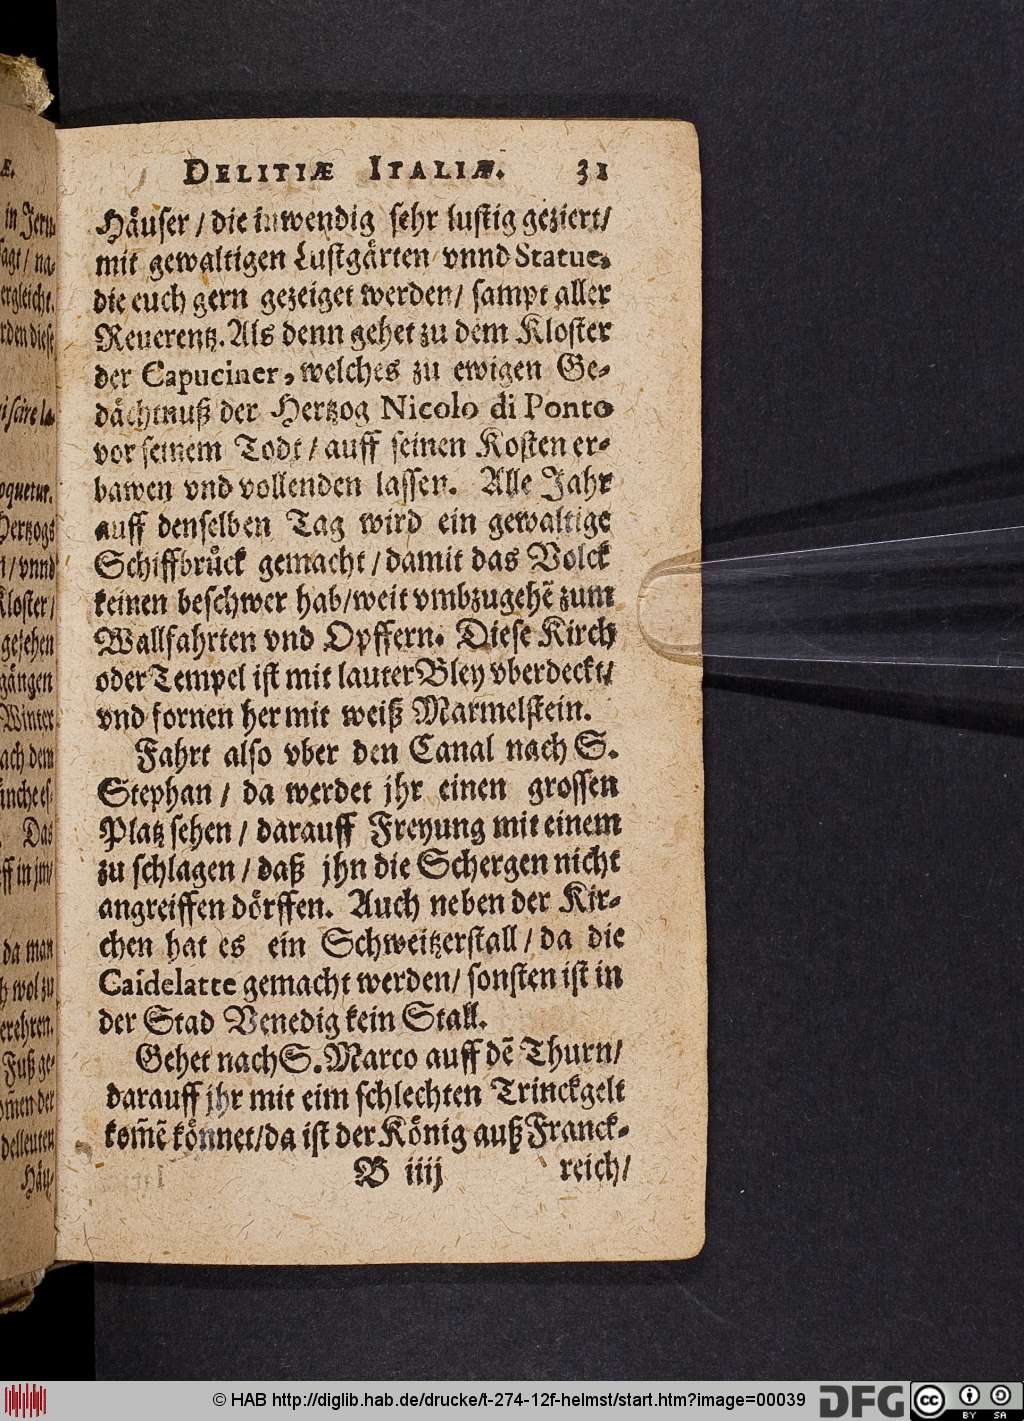 DELITIÆ ITALIÆ. 31
Häuser / die inwendig sehr lustig geziert/
mit gewaltigen Lustgärten vnnd Statue,
die euch gern gezeiget werden/ sampt aller
Reuerentz. Als denn gehet zu dem Kloster
der Capuciner, welches zu ewigen Ge-
dächtnuß der Hertzog Nicolo di Ponto
vor seinem Todt / auff seinen Kosten er-
bawen vnd vollenden lassen. Alle Jahr
auff denselben Tag wird ein gewaltige
Schiffbrůck gemacht / damit das Volck
keinen beschwer hab/weit vmbzugehẽ zum
Wallfahrten vnd Opffern. Diese Kirch
oder Tempel ist mit lauter Bley vberdeckt/
vnd fornen her mit weiß Marmelstein.
Fahrt also vber den Canal nach S.
Stephan / da werdet jhr einen grossen
Platz sehen / darauff Freyung mit einem
zu schlagen / daß jhn die Schergen nicht
angreiffen dörffen. Auch neben der Kir-
chen hat es ein Schweitzerstall / da die
Caidelatte gemacht werden/ sonsten ist in
der Stad Venedig kein Stall.
Gehet nach S. Marco auff dẽ Thurn/
darauff jhr mit eim schlechten Trinckgelt
kom̃ẽ könnet/da ist der König auß Franck-
B iiij reich/
Æ.
in Jeru-
sagt / na-
ergleicht.
rden diese
i scire la-
oquetur.
Hertzogs
n / vnnd
Kloster /
gesehen
gängen
Winter
ach dem
ünche es-
Das
ff in jm/
da man
h wol zu
erehren.
Fuß ge-
om̃en der
delleuten
Häu-
© HAB http://diglib.hab.de/drucke/t-274-12f-helmst/start.htm?image=00039
DFG
cc
BY SA